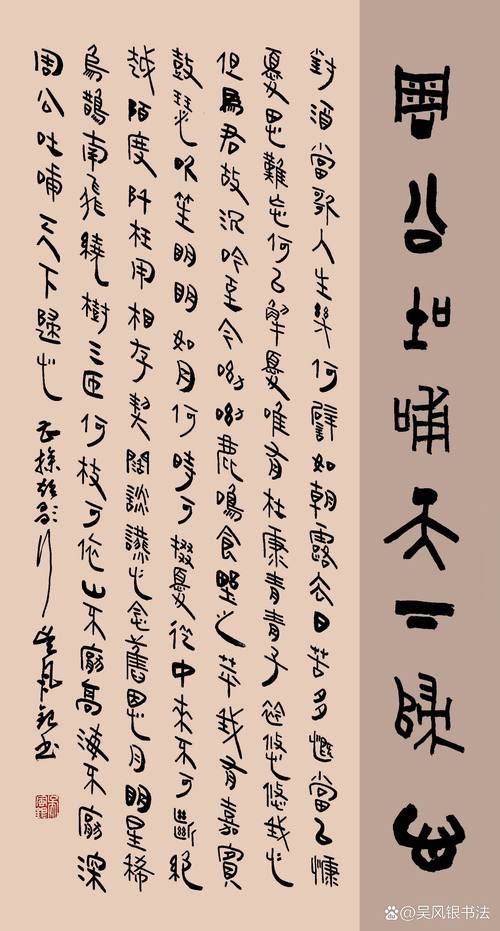 周公吐哺天下歸心
對酒當歌人生幾何譬如朝露去日苦多慨當以慷
憂思難忘何以解憂唯有杜康青青子衿悠悠我心
但為君故沉吟至今呦呦鹿鳴食野之苹我有嘉賓
鼓瑟吹笙明明如月何時可掇憂從中來不可斷絕
越陌度阡枉用相存契闊談讌心念舊恩月明星稀
烏鵲南飛繞樹三匝何枝可依山不厭高海不厭深
周公吐哺天下歸心 曹操短歌行 吴风銀书
吴风银书法